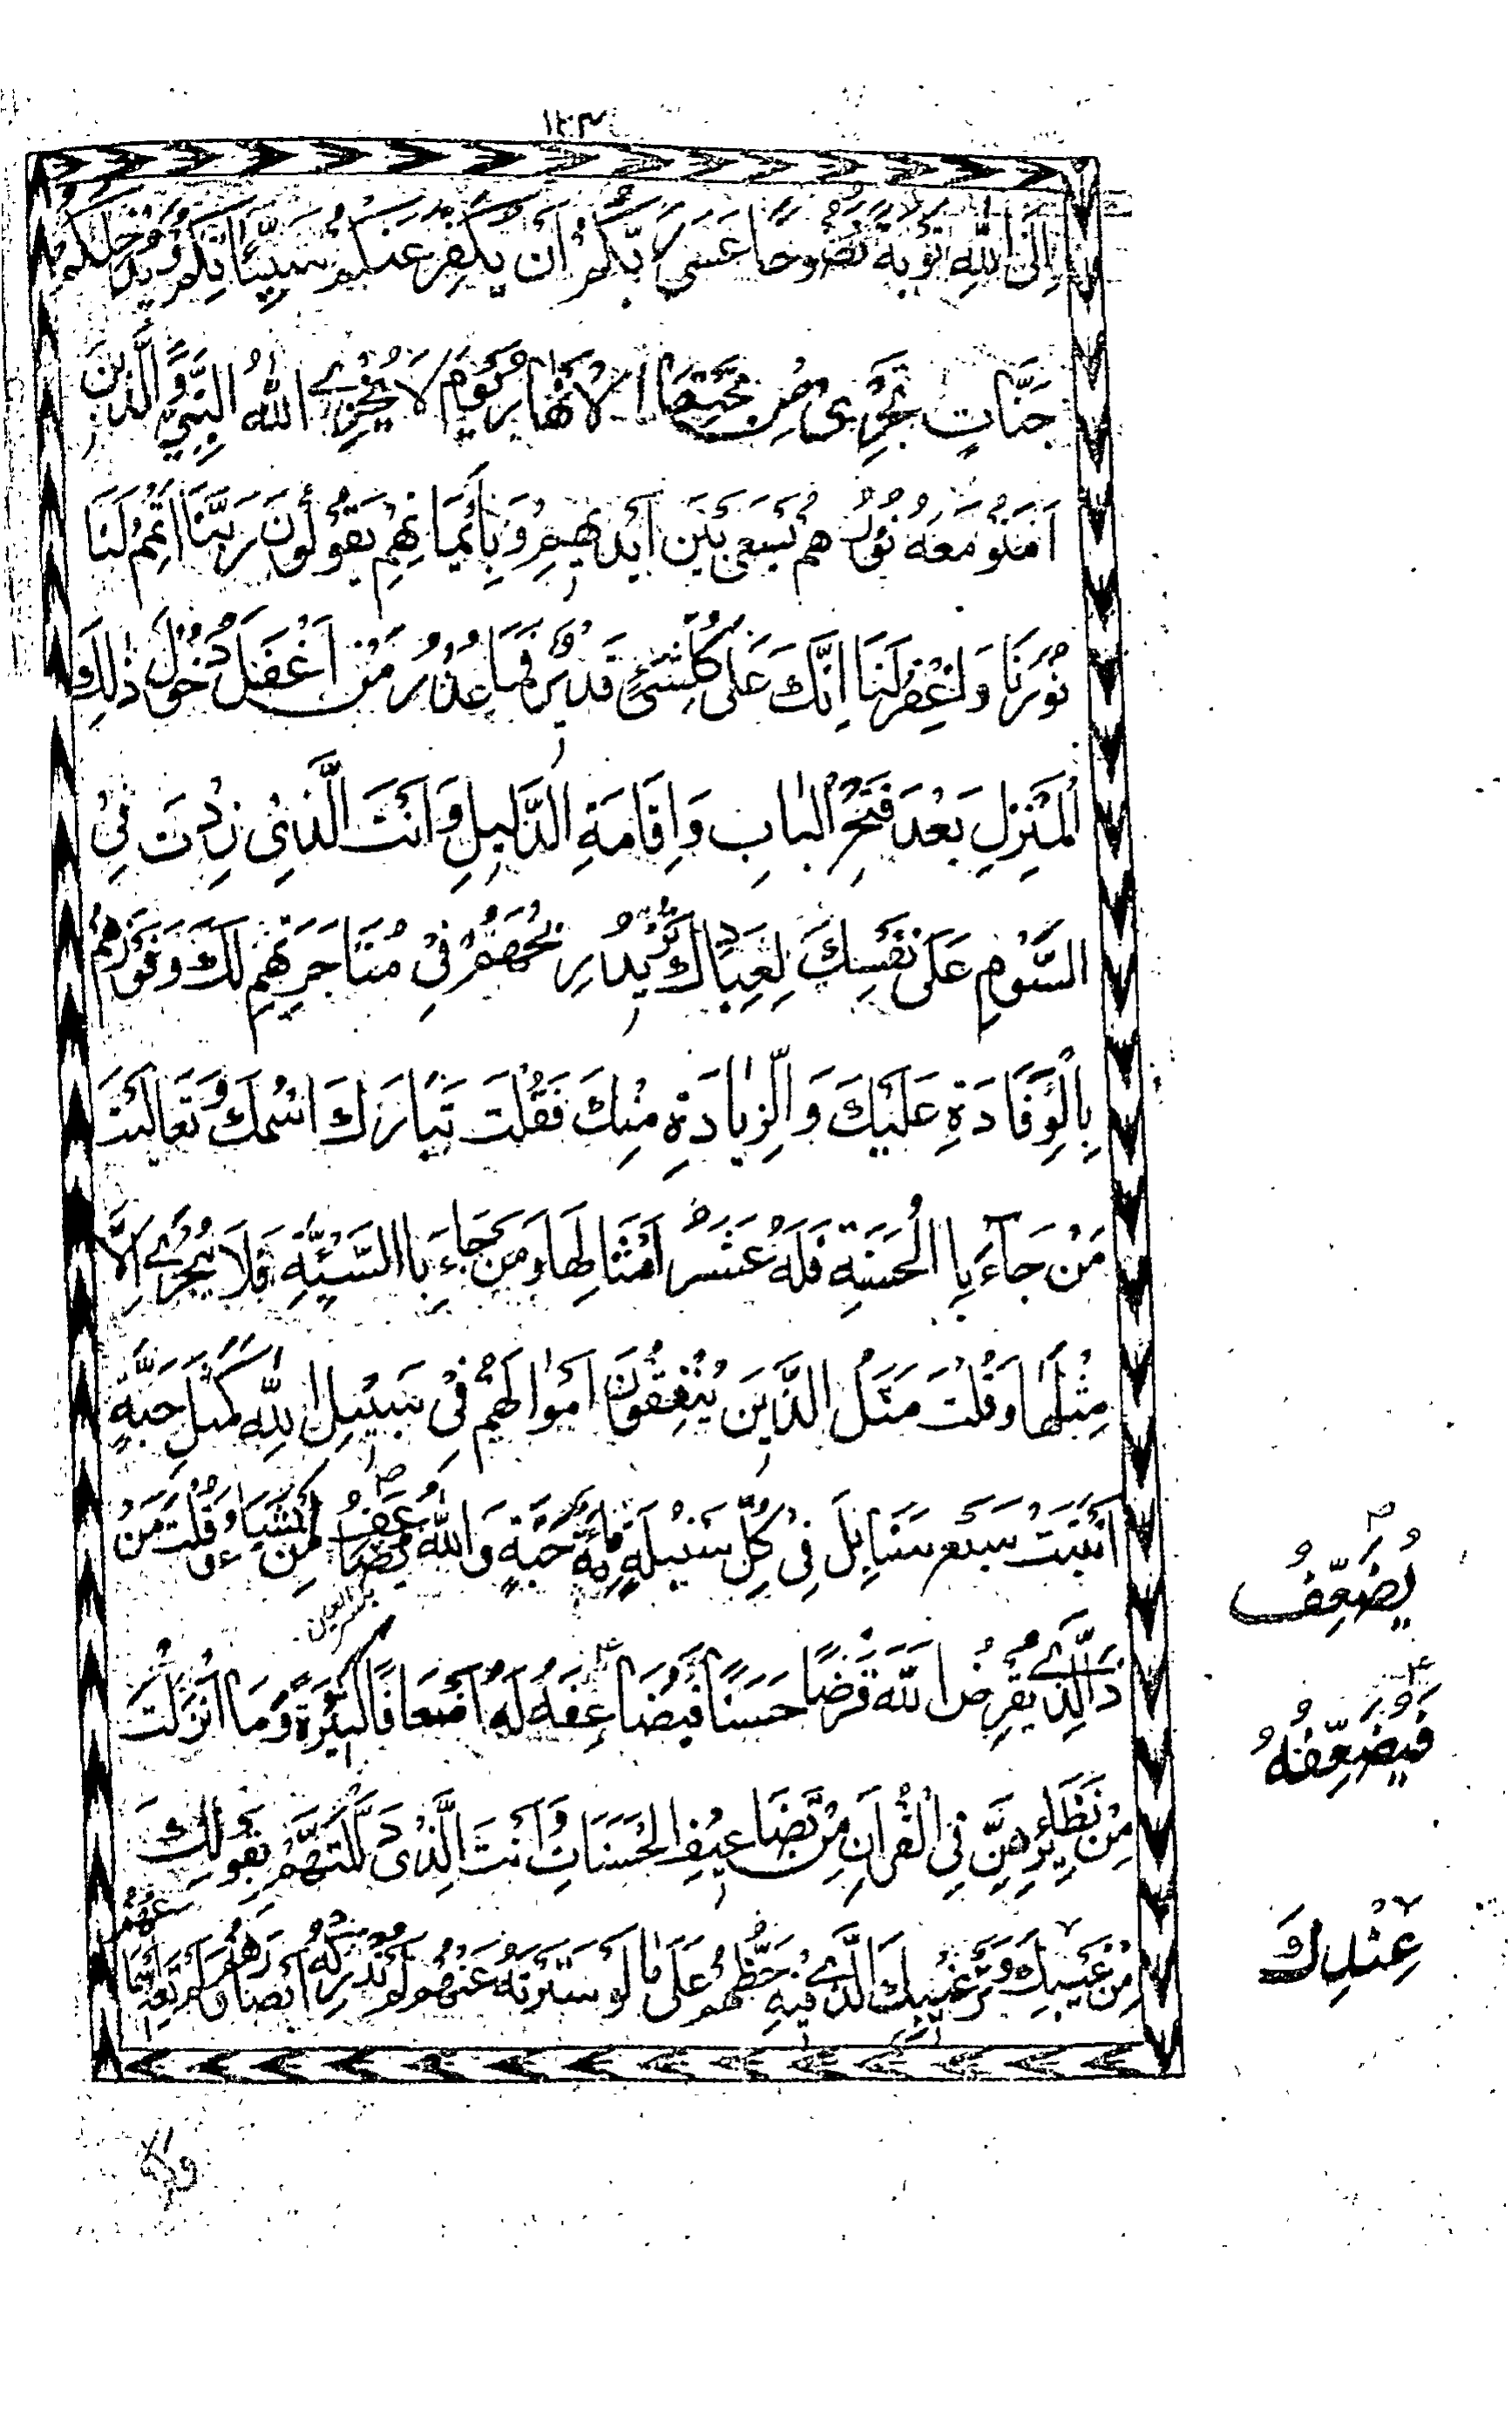 ١٢٣
إِلَى اللّٰهِ تَوْبَةً نَصُوحًا عَسَىٰ رَبُّكُمْ أَنْ يُكَفِّرَ عَنْكُمْ سَيِّئَاتِكُمْ وَيُدْخِلَكُمْ
جَنَّاتٍ تَجْرِى مِنْ تَحْتِهَا الْاَنْهَارُ يَوْمَ لَا يُخْزِے اللّٰهُ النَّبِيَّ وَالَّذِينَ
اٰمَنُو مَعَهُ نُوْرُهُمْ يَسْعَى بَيْنَ اَيْدِيهِمْ وَبِأَيْمَانِهِمْ يَقُولُونَ رَبَّنَا اَتْمِمْ لَنَا
نُوْرَنَا وَاغْفِرْ لَنَا اِنَّكَ عَلَى كُلِّ شَیْءٍ قَدِیْرٌ فَمَا عُذْرُ مَنْ اَغْفَلَ دُخُوْلَ ذٰلِكَ
الْمَنْزِلِ بَعْدَ فَتْحِ الْبٰابِ وَاِقَامَةِ الدَّلِيلِ وَاَنْتَ الَّذِی زِدْتَ فِیْ
السَّوْمِ عَلَى نَفْسِكَ لِعِبَادِكَ تُرِيْدُ رِبْحَهُمْ فِیْ مُتَاجَرَتِهِمْ لَكَ وَفَوْزَهُمْ
بِالْوِفَادَةِ عَلَيْكَ وَالزِّيٰادَةِ مِنْكَ فَقُلْتَ تَبَارَكَ اسْمُكَ وَتَعَالَيْتَ
مَنْ جَآءَ بِاالْحَسَنَةِ فَلَهُ عَشْرُ اَمْثَالِهَا وَمَنْ جَاءَ بِاالسَّيِّئَةِ فَلَا يُجْزٰے اِلَّا
مِثْلَهَا وَقُلْتَ مَثَلُ الَّذِينَ يُنْفِقُونَ اَمْوٰالَهُمْ فِیْ سَبِيْلِ اللّٰهِ كَمَثَلِ حَبَّةٍ
اَنْبَتَتْ سَبْعَ سَنَابِلَ فِیْ كُلِّ سَنْبُلَةٍ مِائَةُ حَبَّةٍ وَاللّٰهُ يُضَاعِفُ لِمَنْ يَشَاءُ وَقُلْتَ مَنْ
ذَالَّذِے يُقْرِضُ اللّٰهَ قَرْضًا حَسَنًا فَيُضَاعِفَهُ لَهُ اَضْعَافًا كَثِيْرَةً وَمَا اَنْزَلْتَ
مِنْ نَظَائِرِهِنَّ فِی الْقُرْاٰنِ مِنْ تَضَاعِيْفِ الْحَسَنَاتِ وَاَنْتَ الَّذِیْ دَلَلْتَهُمْ بِقَوْلِكَ
مِنْ غَيْبِكَ وَتَرْغِيْبِكَ الَّذِے فِيْهِ حَظُّهُمْ عَلَى مٰا لَوْ سَتَرْتَهُ عَنْهُمْ لَمْ تُدْرِكْهُ اَبْصَارُهُمْ وَلَمْ تَعِهِ اَسْمَاعُهُمْ
يُضَعِّفُ
فَيُضَعِّفُهُ
عِنْدِكَ
ولا